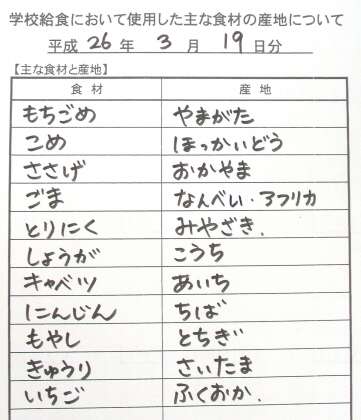 学校給食において使用した主な食材の産地について
平成 26 年 3 月 19 日分
【主な食材と産地】
食材 産地
もちごめ やまがた
こめ ほっかいどう
ささげ おかやま
ごま なんべい・アフリカ
とりにく みやざき.
しょうが こうち
キャベツ あいち
にんじん ちば
もやし とちぎ
きゅうり さいたま
いちご ふくおか.